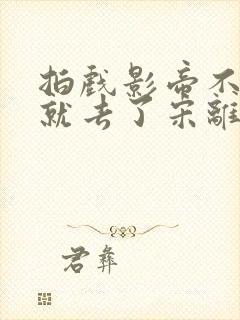 拍戏影帝不
就去了宋離
君彝